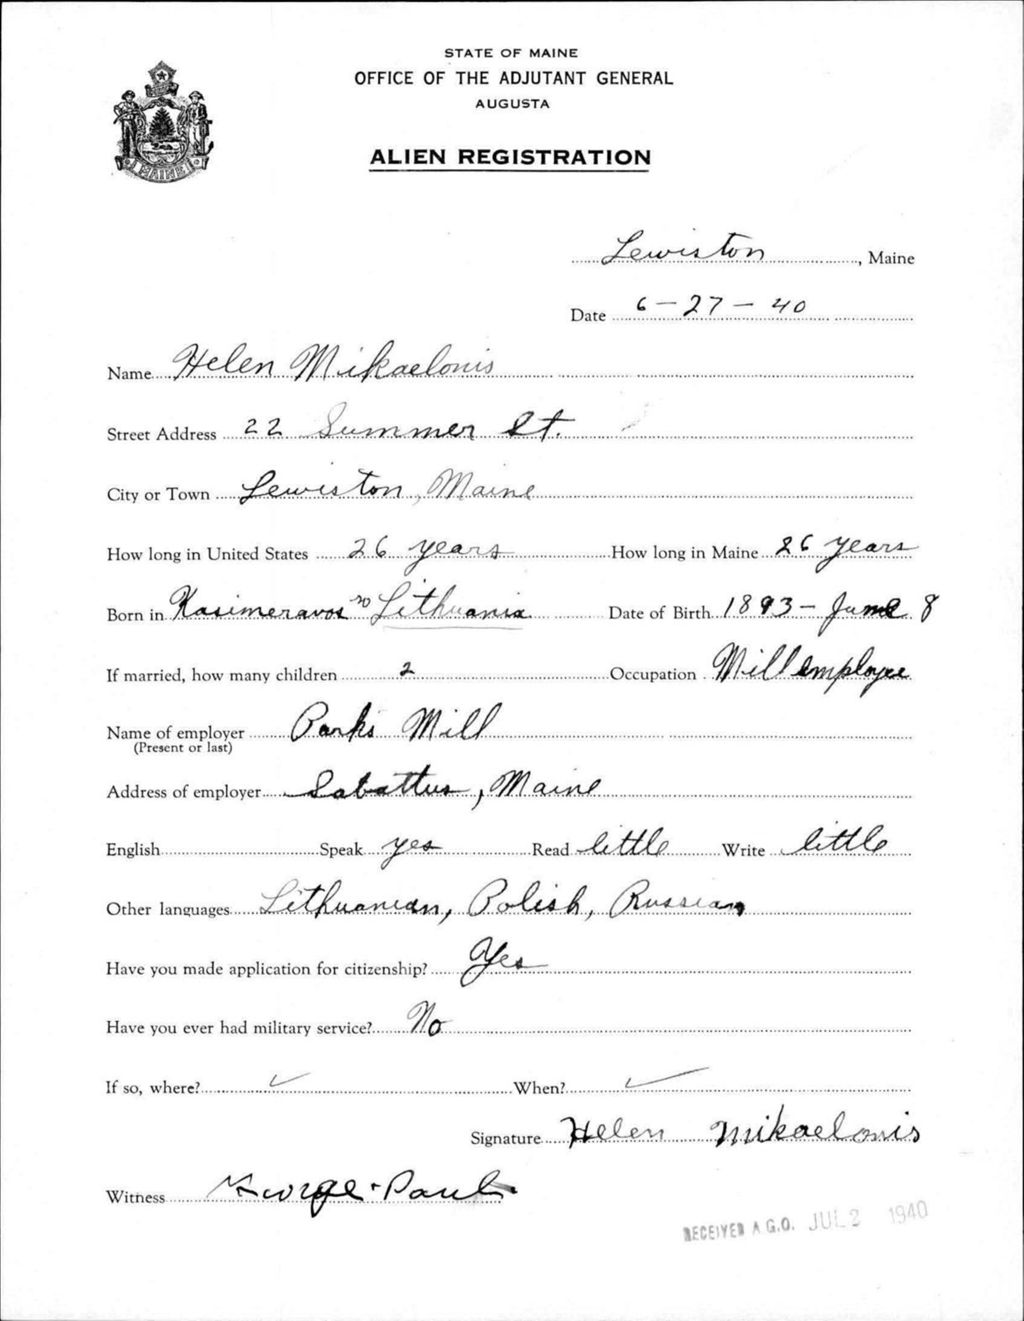 STATE OF MAINE
OFFICE OF THE ADJUTANT GENERAL
AUGUSTA
ALIEN REGISTRATION
MAINE
Lewiston, Maine
Date 6-27-40
Name Helen Mikaelonis
Street Address 22 Summer St.
City or Town Lewiston, Maine
How long in United States 26 years How long in Maine 26 years
Born in Kasimeravos Lithuania Date of Birth 1893- June 8
If married, how many children 2 Occupation Mill employee
Name of employer Parks Mill
(Present or last)
Address of employer Sabattus, Maine
English Speak yes Read little Write little
Other languages Lithuanian, Polish, Russian
Have you made application for citizenship? Yes
Have you ever had military service? No
If so, where? ✓ When? ✓
Signature Helen Mikaelonis
Witness George Paul
RECEIVED A.G.O. JUL 2 1940